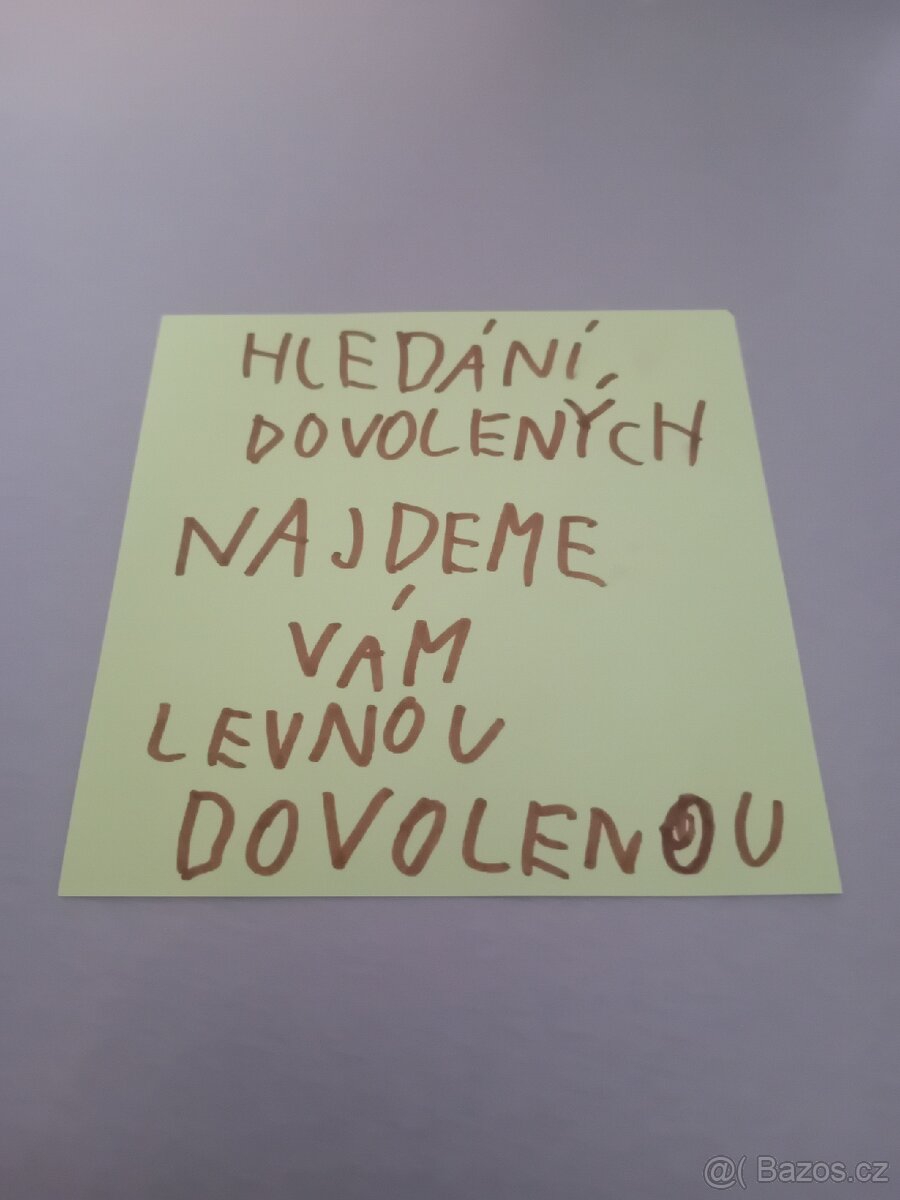 HLEDÁNÍ
DOVOLENÝCH
NAJDEME
VÁM
LEVNOU
DOVOLENOU
@( Bazos.cz